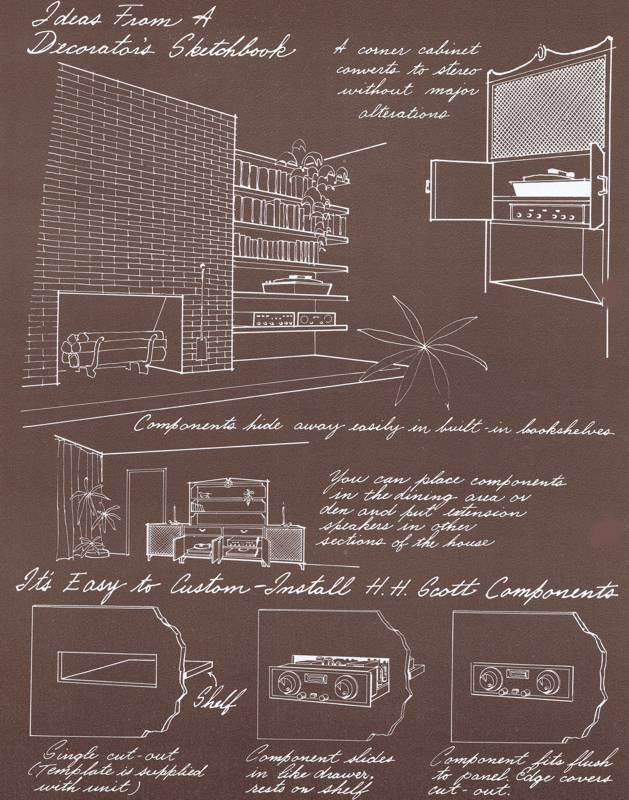 Ideas From A
Decorator's Sketchbook
A corner cabinet
converts to stereo
without major
alterations
Components hide away easily in built-in bookshelves
You can place components
in the dining area or
den and put extension
speakers in other
sections of the house
It's Easy to Custom-Install H.H. Scott Components
Shelf
Single cut-out
(Template is supplied
with unit)
Component slides
in like drawer,
rests on shelf
Component fits flush
to panel. Edge covers
cut-out.